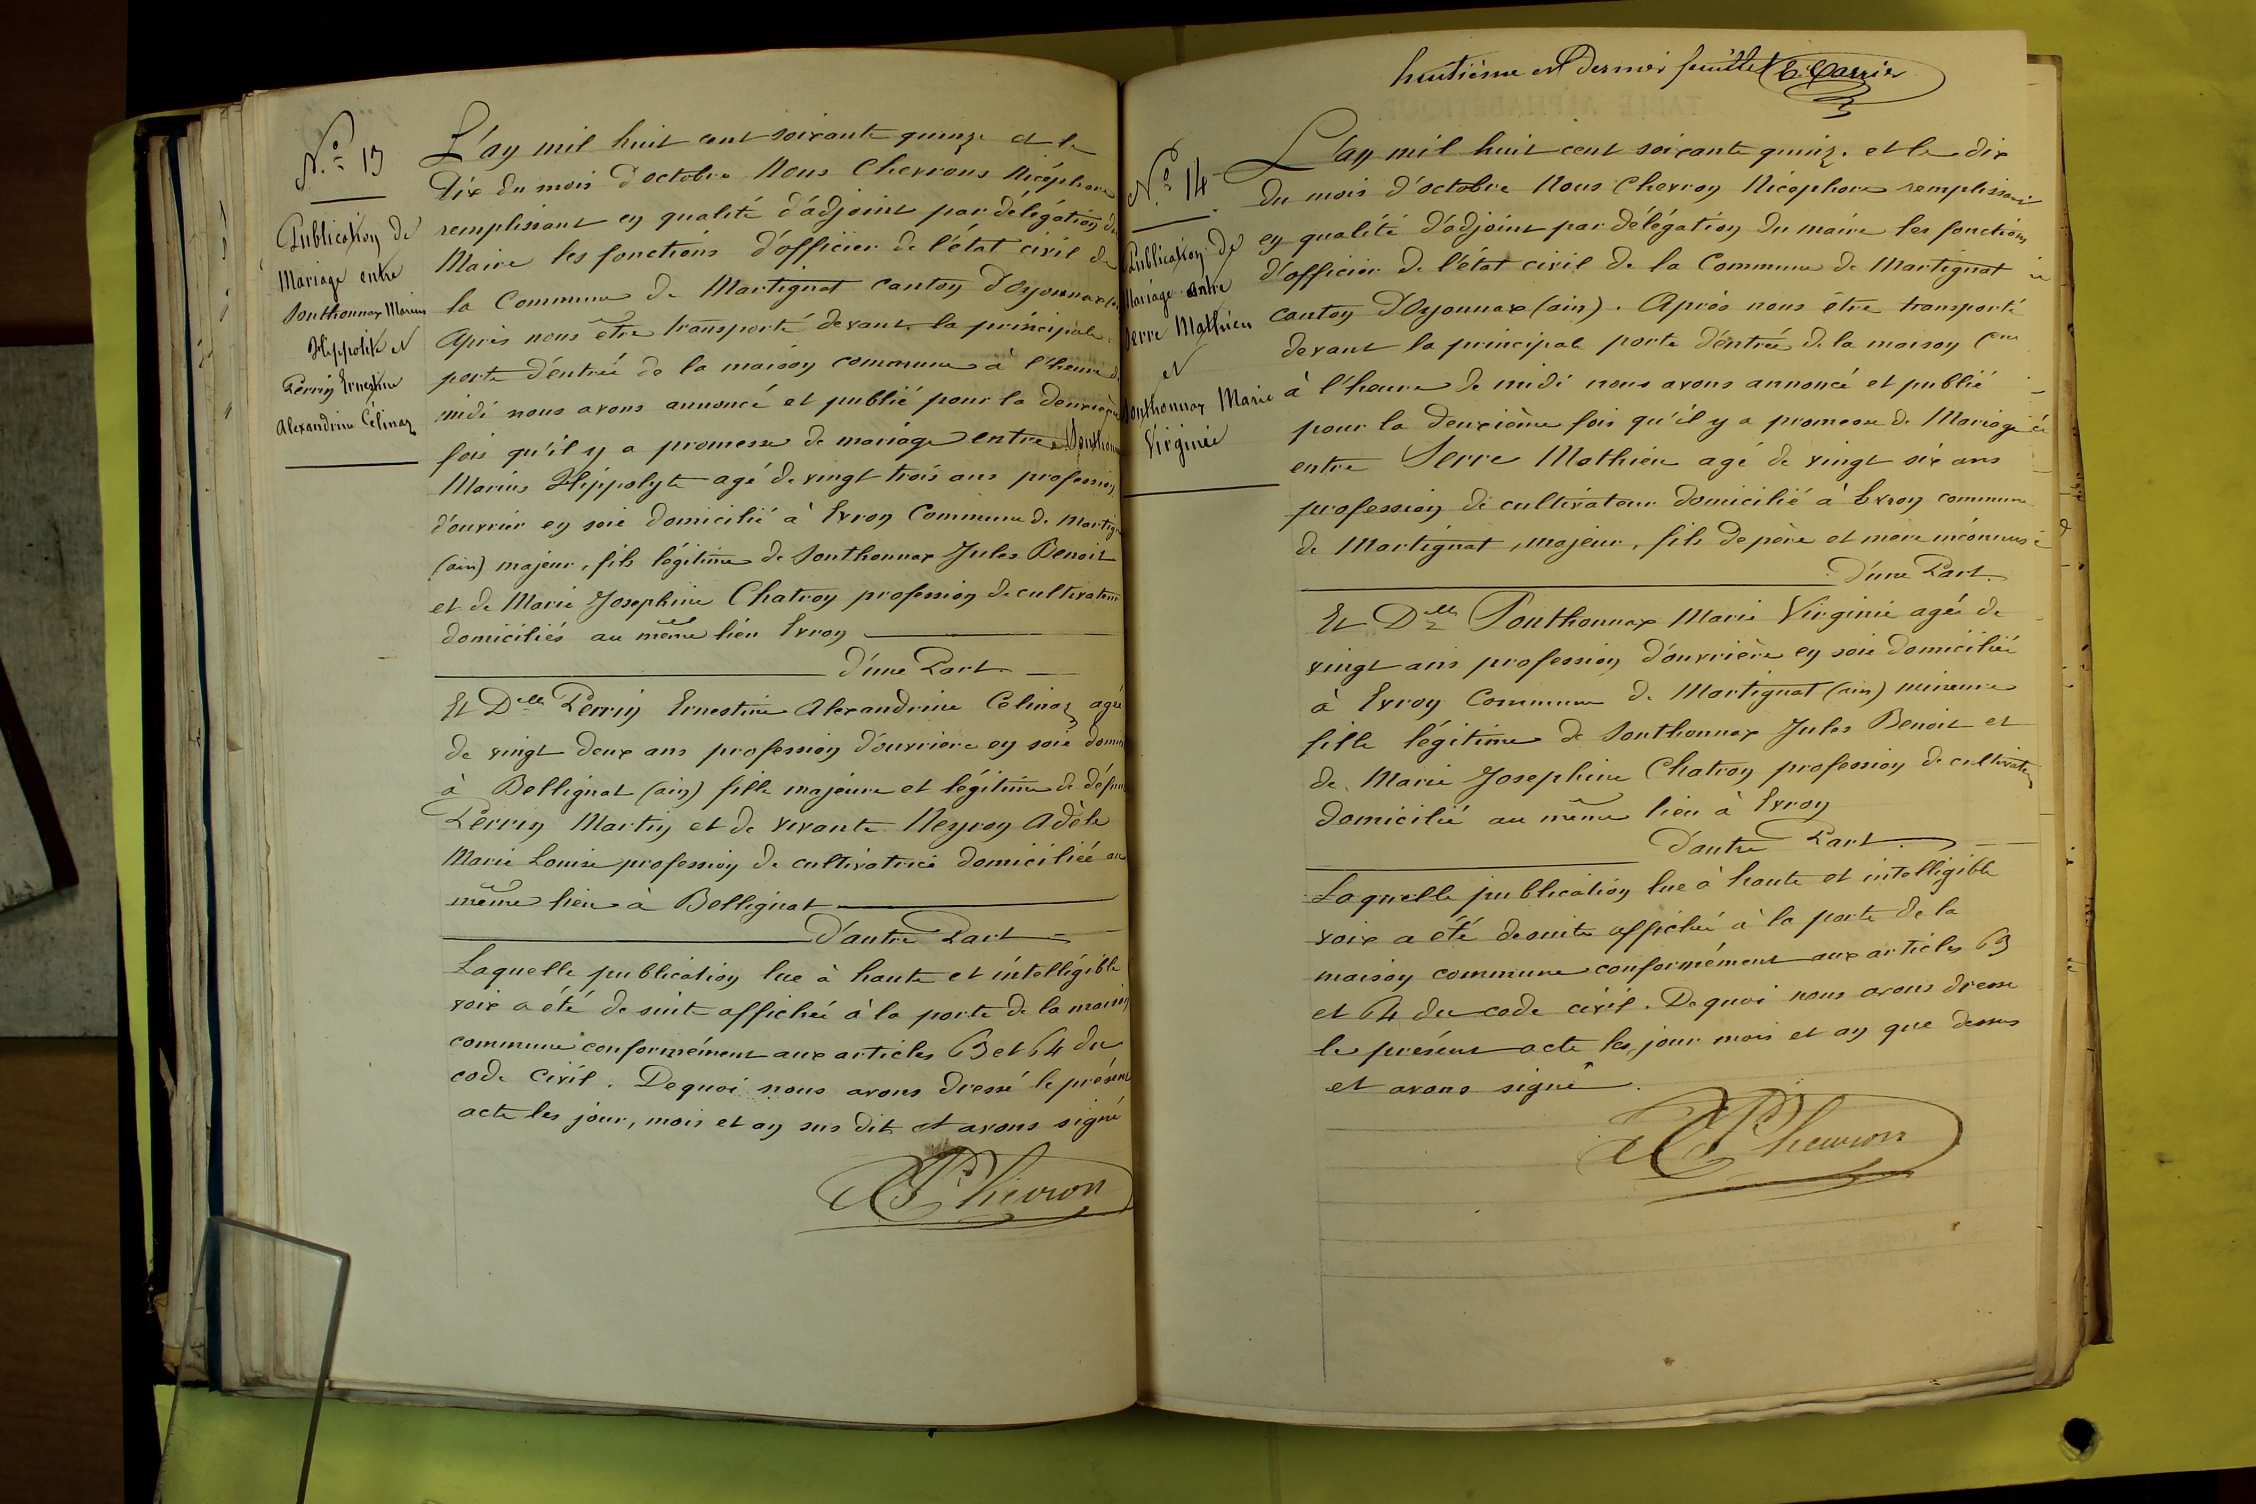 N.º 13
Publication de
Mariage entre
Sonthonnax Marius
Hippolite et
Perrin Ernestine
Alexandrine Célinaz
L'an mil huit cent soixante quinze et le
dix du mois d'octobre Nous Chevrons Nicéphore
remplissant en qualité d'adjoint par délégation du
Maire les fonctions d'officier de l'état civil de
la Commune de Martignat canton d'Oyonnax
Après nous être transporté devant la principale
porte d'entrée de la maison commune à l'heure de
midi nous avons annoncé et publié pour la deuxième
fois qu'il y a promesse de mariage entre Sonthonnax
Marius Hippolyte agé de vingt trois ans profession
d'ouvrier en soie domicilié à Evron Commune de Martignat
(ain) majeur, fils légitime de Sonthonnax Jules Benoit
et de Marie Josephine Chatron profession de cultivateur
domiciliés au même lieu Evron
d'une Part
Et Delle Perrin Ernestine Alexandrine Célinaz agée
de vingt deux ans profession d'ouvrière en soie
à Bellignat (ain) fille majeure et légitime de défunt
Perrin Martin et de vivante Neyron Adèle
Marie Louise profession de cultivatrice domiciliée au
même lieu à Bellignat
D'autre Part
Laquelle publication lue à haute et intélligible
voix a été de suite affichée à la porte de la maison
commune conformément aux articles 63 et 64 du
code Civil. De quoi nous avons dressé le présent
acte les jour, mois et an sus dit et avons signé
Chevron
huitième et dernier feuillet E. Carrier
N.º 14
Publication de
Mariage entre
Serre Mathieu
et
Sonthonnax Marie
Virginie
L'an mil huit cent soixante quinze et le dix
du mois d'octobre Nous Chevron Nicéphore remplissant
en qualité d'adjoint par délégation du maire les fonctions
d'officier de l'état civil de la Commune de Martignat
canton d'Oyonnax (ain). Après nous être transporté
devant la principale porte d'entrée de la maison Cne
à l'heure de midi nous avons annoncé et publié
pour la deuxième fois qu'il y a promesse de Mariage
entre Serre Mathieu agé de vingt six ans
profession de cultivateur domicilié à Evron commune
de Martignat, majeur, fils de père et mère inconnus
D'une Part
Et Delle Sonthonnax Marie Virginie agée de
vingt ans profession d'ouvrière en soie domiciliée
à Evron Commune de Martignat (ain) mineure
fille légitime de Sonthonnax Jules Benoit et
de Marie Josephine Chatron profession de cultivateur
domicilié au même lieu à Evron
D'autre Part
Laquelle publication lue à haute et intelligible
voix a été de suite affichée à la porte de la
maison commune conformément aux articles 63
et 64 du code civil. De quoi nous avons dressé
le présent acte les jour mois et an que dessus
et avons signé.
Chevron